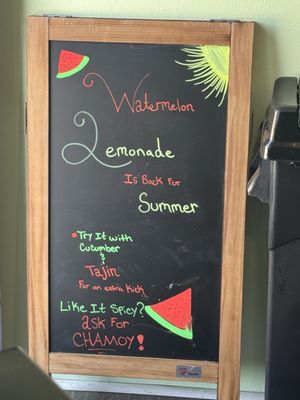 Watermelon
Lemonade
Is Back For
Summer
Try It with
Cucumber
&
Tajin
For an extra Kick
Like It Spicy?
ask For
CHAMOY!